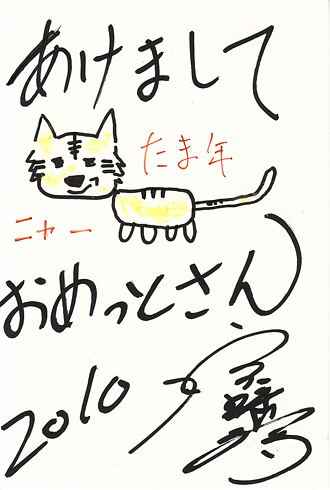 あけまして
たま年
ニャー
おめっとさん
2010